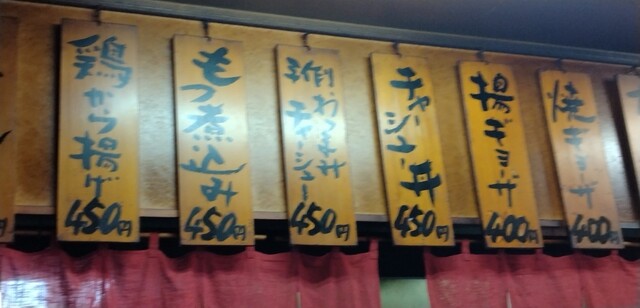 鶏から揚げ
450円
もつ煮込み
450円
チャーシュー
450円
チャーシュー丼
450円
揚ギョーザ
400円
焼ギョーザ
400円
円